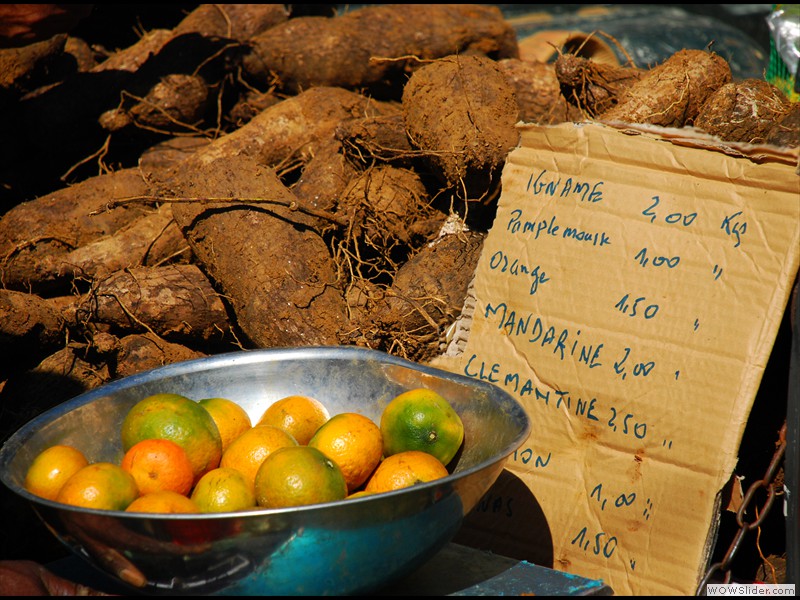 IGNAME 2,00 Kgs
Pamplemousk 1,00 "
Orange 1,50 "
MANDARINE 2,00 "
CLEMANTINE 2,50 "
ON 1,00 "
NAS 1,50 "
WOWSlider.com